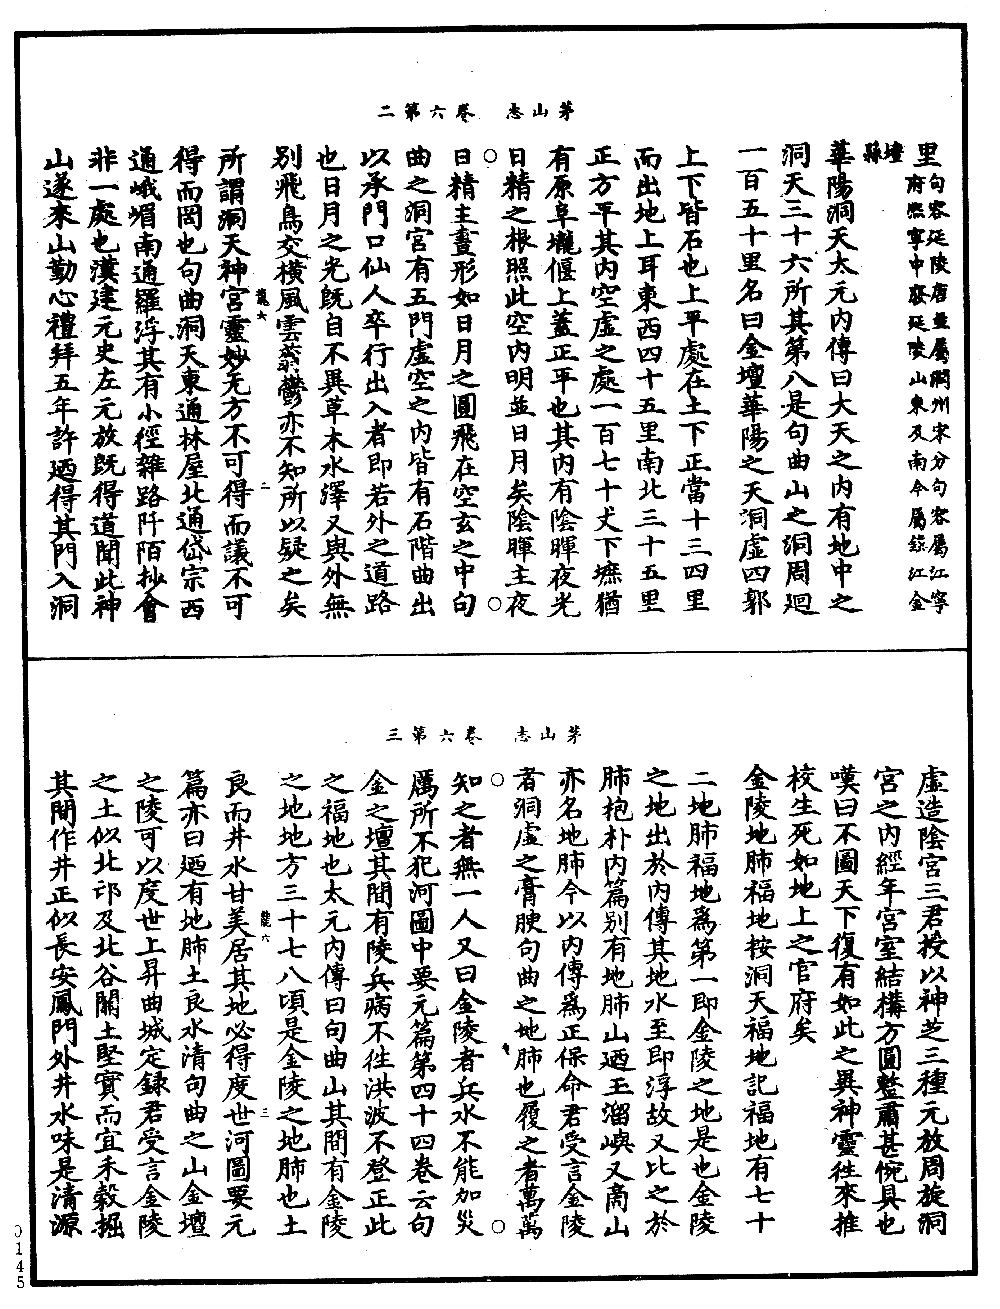 茅山志　卷六第二
里句容延陵唐並屬潤州宋分句容屬江寧
府熙寧中廢延陵山東及南今屬錄江金
壇縣
華陽洞天太元內傳曰大天之內有地中之
洞天三十六所其第八是句曲山之洞周迴
一百五十里名曰金壇華陽之天洞虛四郭
上下皆石也上平處在土下正當十三四里
而出地上耳東西四十五里南北三十五里
正方平其內空虛之處一百七十丈下墌猶
有原阜壠偃上蓋正平也其內有陰暉夜光
日精之根照此空內明並日月矣陰暉主夜
日精主晝形如日月之圓飛在空玄之中句
曲之洞宮有五門虛空之內皆有石階曲出
以承門口仙人卒行出入者即若外之道路
也日月之光既自不異草木水澤又與外無
別飛鳥交橫風雲蓊鬱亦不知所以疑之矣
龍六　二
所謂洞天神宮靈妙无方不可得而議不可
得而罔也句曲洞天東通林屋北通岱宗西
通峨嵋南通羅浮其有小徑雜路阡陌抄會
非一處也漢建元史左元放既得道聞此神
山遂來山勤心禮拜五年許迺得其門入洞
茅山志　卷六第三
虛造陰宮三君授以神芝三種元放周旋洞
宮之內經年宮室結構方圓整肅甚惋具也
嘆曰不圖天下復有如此之異神靈往來推
校生死如地上之官府矣
金陵地肺福地按洞天福地記福地有七十
二地肺福地為第一即金陵之地是也金陵
之地出於內傳其地水至即浮故又比之於
肺抱朴內篇別有地肺山迺玉溜嶼又商山
亦名地肺今以內傳為正保命君受言金陵
者洞虛之膏腴句曲之地肺也履之者萬萬
知之者無一人又曰金陵者兵水不能加災
厲所不犯河圖中要元篇第四十四卷云句
金之壇其間有陵兵病不往洪波不登正此
之福地也太元內傳曰句曲山其間有金陵
之地地方三十七八頃是金陵之地肺也土
龍六　三
良而井水甘美居其地必得度世河圖要元
篇亦曰迺有地肺土良水清句曲之山金壇
之陵可以度世上昇曲城定錄君受言金陵
之土似北邙及北谷關土堅實而宜禾穀掘
其間作井正似長安鳳門外井水味是清源
0145